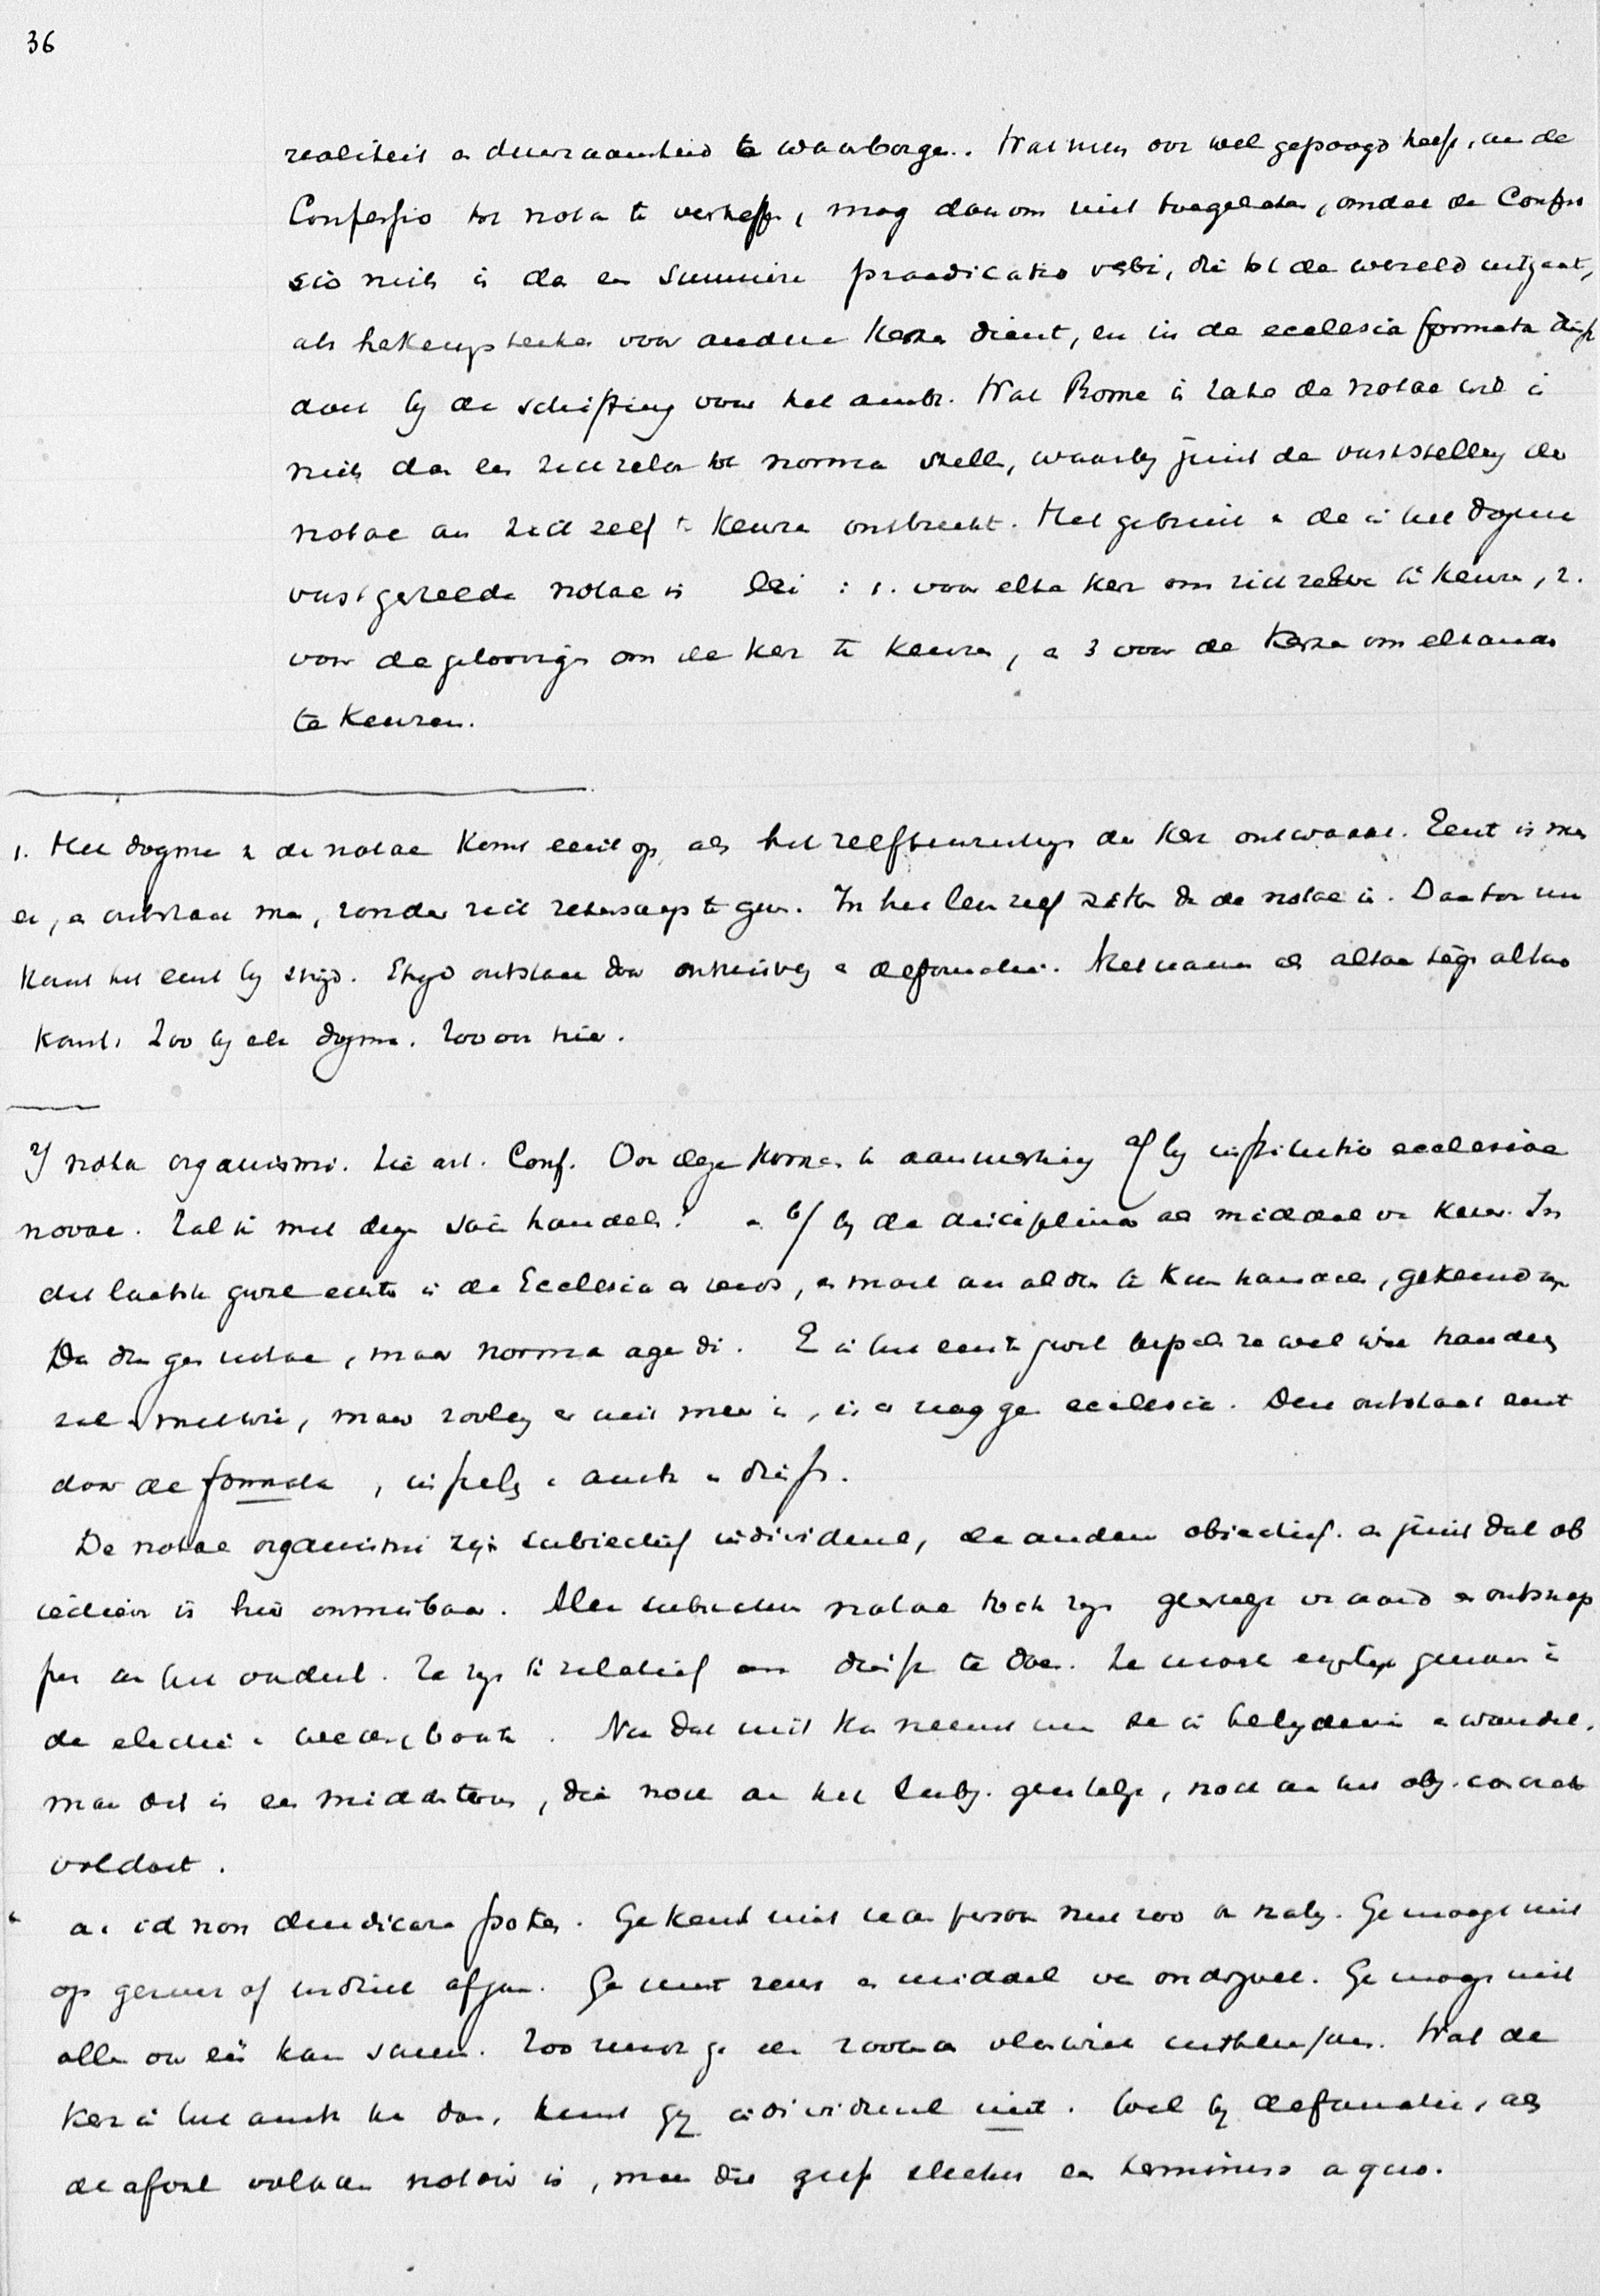 36
realiteit en duurzaamheid te waarborgen. Wat men ook wel gepoogd heeft, om de
Confessio tot nota te verheffen, mag daarom niet toegelaten, omdat de Confes
sio niets is dan een summiere praedicatio verbi, die tot de wereld uitgaat,
als herkenningsteeken voor andere kerken dient, en in de ecclesia formata dienst
doet bij de schifting voor het ambt. Wat Rome in zake de notae wil is
niets dan een zichzelf tot norma stellen, waarbij juist de vaststelling der
notae om zich zelf te keuren ontbreekt. Het gebruik van de in het dogma
vastgestelde notae is 3lei : 1. voor elke kerk om zichzelve te keuren, 2.
voor de geloovigen om de kerk te keuren, en 3 voor de kerken om elkander
te keuren.
1. Het dogme van de notae komt eerst op, als het zelfbewustzijn der kerk ontwaakt. Eerst is men
er, en ontstaat men, zonder zich rekenschap te geven. In het leven zelf zitten dan de notae in. Daartoe nu
komt het eerst bij strijd. Strijd ontstaat door ontzuivering en deformatie. Met name als altaar tegen altaar
komt. Zoo bij elk dogma. Zoo ook hier.
2/ nota organismi. Zie art. Conf. Ook deze komen in aanmerking a/ bij institutio ecclesiae
novae. Zal ik met dezen saam handelen? en b/ bij de disciplina als middel van keur. In
dit laatste geval echter is de Ecclesia er reeds, en moet om als lid te kunnen handelen, gekeurd zijn
Dan dus geen notae, maar norma agendi. En in het eerste geval bepalen ze wel wie handelen
zal en met wie, maar zoolang er niet meer is, is er nog geen ecclesia. Deze ontstaat eerst
door de formata, instelling van ambt en dienst.
De notae organismi zijn subiectief individueel, de andere obiectief. en juist dat ob
iectieve is hier onmisbaar. Alle subiectieve notae toch zijn geestelijk van aard en ontsnap
pen aan het oordeel. Ze zijn te relatief om dienst te doen. Ze moest eigenlijk genomen in
de electie en wedergeboorte. Nu dat niet kan neemt men ze in belijdenis en wandel.
maar dit is een middenterm, die noch aan het subj. geestelijk, noch aan het obj. concrete
voldoet.
a. id non diiudicare potes. Ge kent niet iederen persoon neen zoo van nabij. Ge moogt niet
op geruchten of indruk afgaan. Ge mist zelf een middel van onderzoek. Ge moogt niet
allen over één kam scheren. Zoo
kerk in het ambt kan doen, kunt gij individueel niet. Wel bij deformatie, als
de afval volkomen notoir is, maar dit geeft slechts een terminus a quo.